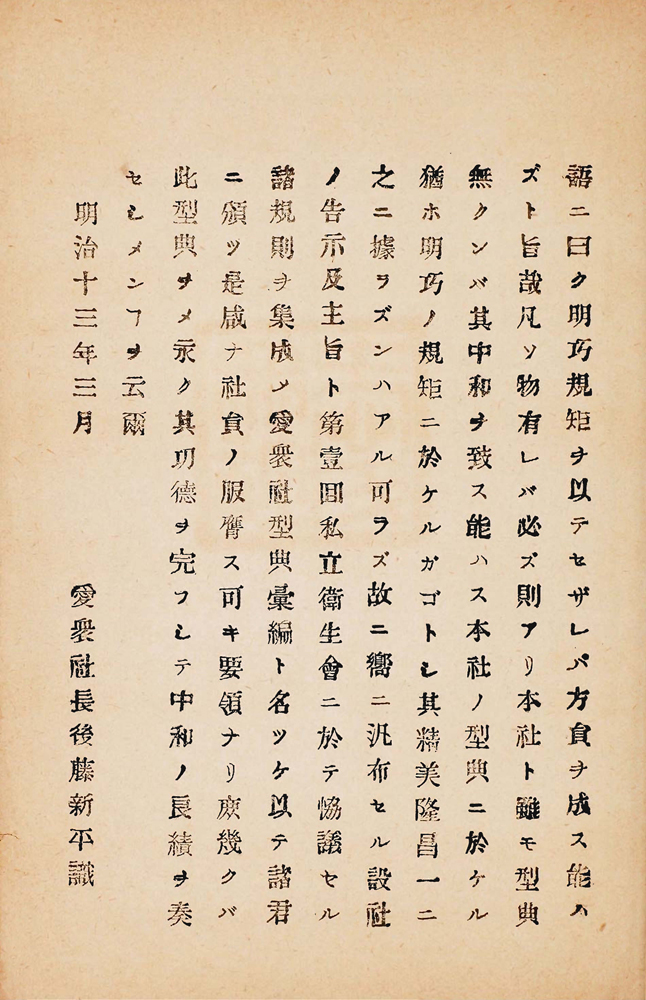 語ニ曰ク明巧規矩ヲ以テセザレバ方負ヲ成ス能ハ
ズト旨哉凡ソ物有レバ必ズ則アリ本社ト雖モ型典
無クンバ其中和ヲ致ス能ハス本社ノ型典ニ於ケル
猶ホ明巧ノ規矩ニ於ケルガゴトシ其精美隆昌一ニ
之ニ據ラズンハアル可ラズ故ニ嚮ニ汎布セル設社
ノ告示及主旨ト第壹囘私立衛生會ニ於テ恊議セル
諸規則ヲ集成メ愛衆社型典彙編ト名ツケ以テ諸君
ニ頒ツ是咸ナ社負ノ服膺ス可キ要領ナリ庻幾クバ
此型典ヲメ永ク其功德ヲ完フシテ中和ノ良績ヲ奏
セシメンヿヲ云爾
明治十三年三月
愛衆社長後藤新平識